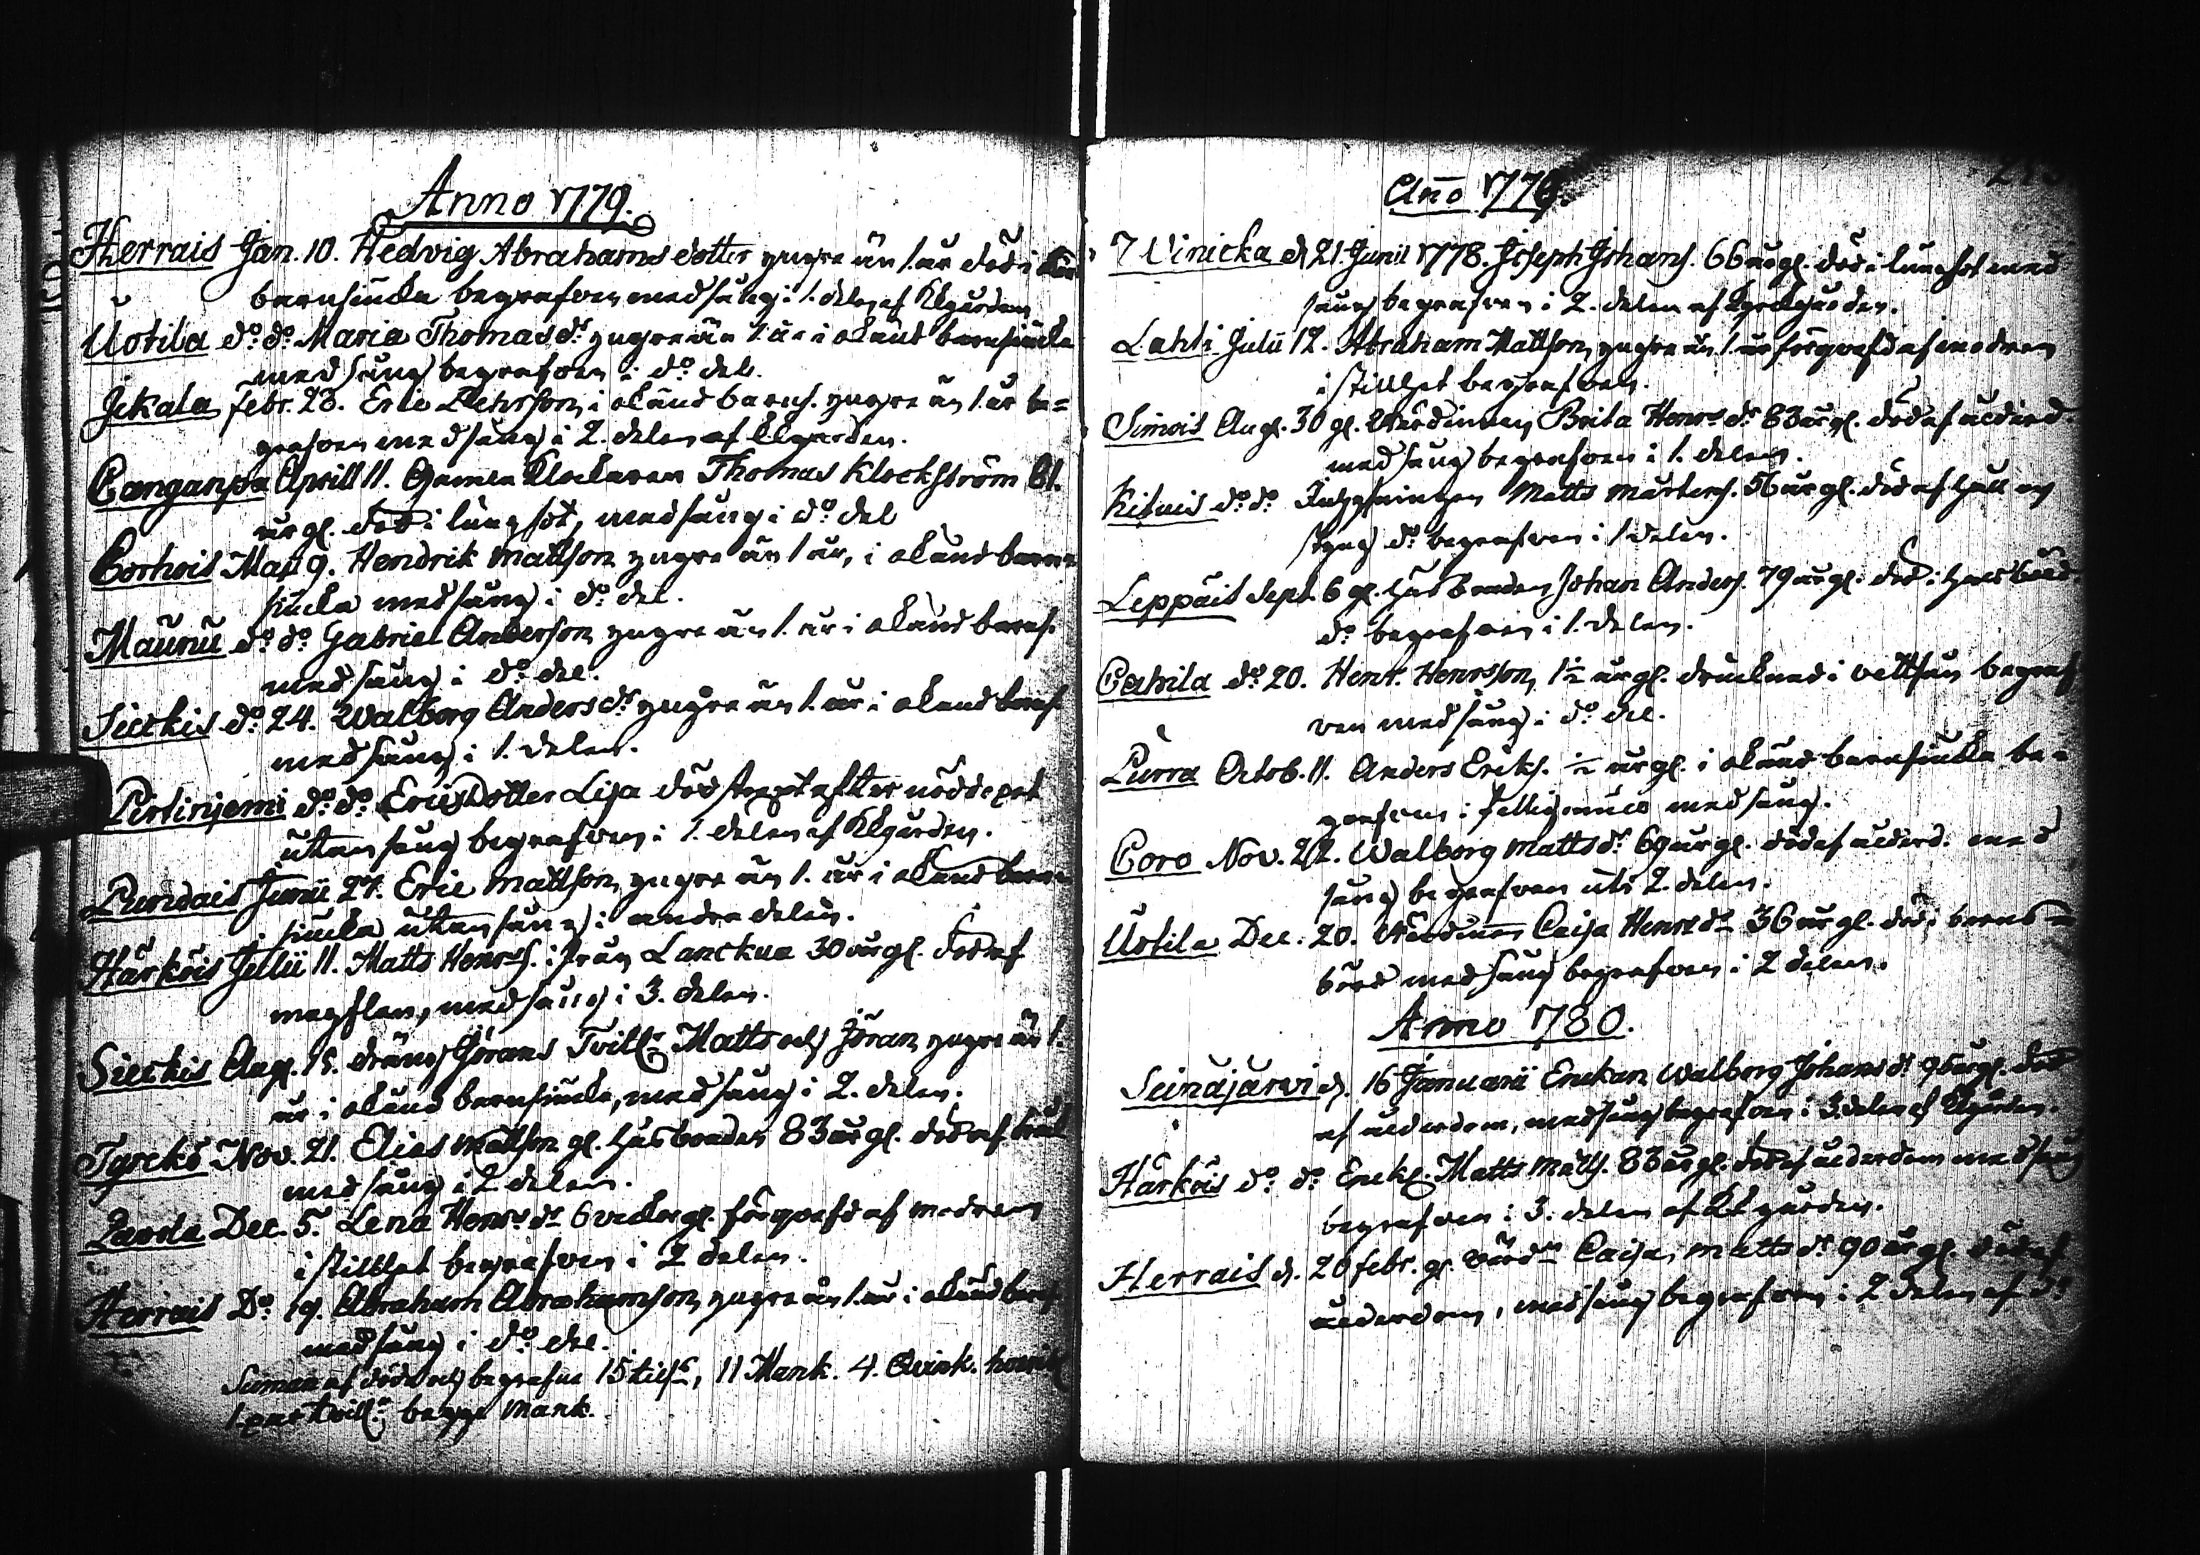 Anno 1779.
Herrais Jan. 10. Hedvig Abrahams dotter yngre än 1. år död i
barnsiucka begrafven med sång i 1. delen af Kkgården
Uotila do. do. Maria Thomas dr. yngre än 1. år i okänd barnsiucka
med sång begrafven i do. del.
Jckala febr. 28. Eric Pehrsson, i okänd barns. yngre än 1. år be=
grafven med sång i 2. delen af Kkgården.
Canganpä Aprill 11. Gamla Klockaren Thomas Klockström 61.
år gl. död i lungsot, med sång i do. del
Corhois Maji 9. Hendrik Mattson yngre än 1 år, i okänd barn=
siucka med sång i do. del.
Maunu do. do. Gabriel Anderson yngre än 1. år i okänd barns.
med sång i do. del.
Siectis do. 24. Walborg Anders dr. yngre än 1. år i okänd barns.
med sång i 1. delen.
Pirtinjemi do. do. Erics Dotter Lisa död straxt efter nöddopet
utan sång begrafven i 1. delen af Kkgården.
Juni 27. Eric Mattson, yngre än 1. år i okänd barn=
siucka utan sång i andra delen.
Härköis Julii 11. Matts Henrs. ifrån Lanckua 30 år gl. död af
messlen, med sång i 3. delen.
Siectis Aug. 15. dräng Jörans Tvill. Matts och Jöran yngre än 1.
år i okänd barnsiucka, med sång i 2. delen.
Tyrckö Nov. 21. Elias Mattson gl. husbonden 83 år gl. död af
med sång i 2 delen.
Dec. 5. Lena Henrs dr. 6 veckor gl. förqvafd af modren
i stillhet begrafven i 2 delen.
Herrais Do. 19. Abraham Abrahamson, yngre än 1. år i okänd barns.
med sång i do. del.
Suman af döda och begrafne 15 tills., 11 Mank. 4. Qvink.
1. par tvill. begge Mank.
Año 1779.
Winicka d. 21. Junii 1778. Joseph Johans. 66 år gl. död i lungsot med
sång begrafven i 2. delen af kyrckgården.
Lahti Julii 12. Abraham Mattson, yngre än 1. år förqvafd af modren
i stillhet begrafven.
Simois Aug. 30 gl. Wärdinnan Brita Henrs. dr. 83 år gl. död af ålderd.
med sång begrafven i 1. delen.
Kituis do. do. Inhysningen Matts Mårtens. 56 år gl. död af håll och
styng do. begrafven i 1 delen.
Leppäis Sept. 6 gl. husbonden Johan Anders. 79 år gl. död i
do. begrafven i 1. delen.
do. 20. Henr. Henrsson, 1½ år gl. drucknad i begraf
ven med sång i do. del.
Purra Octob. 11. Anders Eriks. ½ år gl. i okänd barnsiucka be=
grafven i med sång.
Coro Nov. 21. Walborg Matts dr. 69 år gl. död af ålderd. med
sång begrafven uti 2. delen.
Uotila Dec. 20. Wärdinnan Caisa Henrs dr 36 år gl. död i barns=
börd med sång begrafven i 2 delen.
Anno 1780.
Seinäjärvi d. 16 Januarii Enckan Walborg Johans dr. 96 år gl. död
af ålderdom, med sång begrafven i 3. delen af Kkgården.
Härköis do. do. Enckl. Matts Matts. 83 år gl. död af ålderdom med sång
begrafven i 3. delen af Kkgården.
Herrais d. 20 febr. gl. Värdn. Caisa, Matts dr. 90 år gl. död af
ålderdom, med sång begrafven i 2 delen af do.